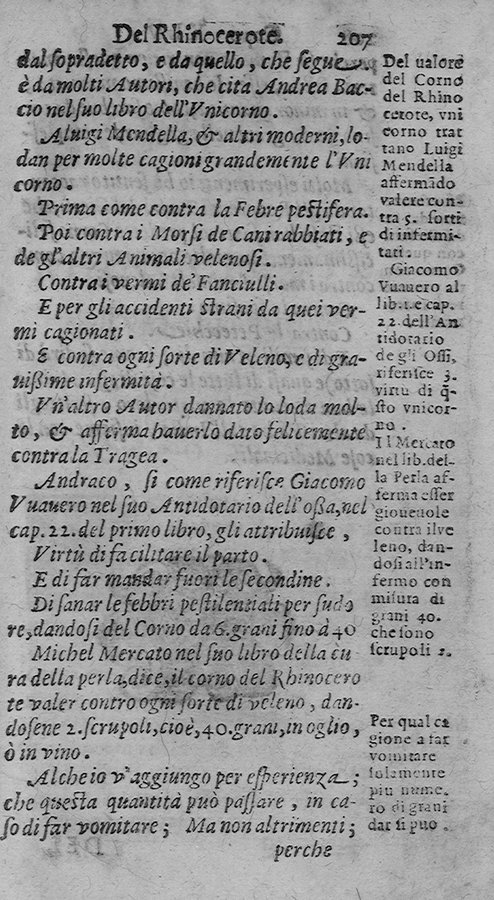 Del Rhinocerote. 207
dal sopradetto, e da quello, che segue
è da molti Autori, che cita Andrea Bac-
cio nel suo libro dell'Vnicorno.
Aluigi Mendella, & altri moderni, lo-
dan per molte cagioni grandemente l'Vni
corno.
Prima come contra la Febre pestifera.
Poi contra i Morsi de Cani rabbiati, e
de gl'altri Animali velenosi.
Contra i vermi de' Fanciulli.
E per gli accidenti strani da quei ver-
mi cagionati.
E contra ogni sorte di Veleno, e di gra-
uißime infermità.
Vn'altro Autor dannato lo loda mol-
to, & afferma hauerlo dato felicemente
contra la Tragea.
Andraco, si come riferisce Giacomo
Vuauero nel suo Antidotario dell'oßa, nel
cap. 22. del primo libro, gli attribuisce,
Virtù di facilitare il parto.
E di far mandar fuori le secondine.
Di sanar le febbri pestilentiali per sudo
re, dandosi del Corno da 6. grani fino à 40
Michel Mercato nel suo libro della cu
ra della perla, dice, il corno del Rhinocero
te valer contro ogni sorte di veleno, dan-
dosene 2. scrupoli, cioè, 40. grani, in oglio,
ò in vino.
Alche io v'aggiungo per esperienza;
che questa quantità può passare, in ca-
so di far vomitare; Ma non altrimenti;
perche
Del ualore
del Corno
del Rhino
cerote, vni
corno trat
tano Luigi
Mendella
affermãdo
valere con-
tra 5. sorti
di infermi-
tati.
Giacomo
Vuauero al
lib. 1. e cap.
22. dell'An
tidotario
de gli Ossi,
riferisce 3.
virtu di q̃-
sto vnicor-
no.
Il Mercato
nel lib. del-
la Perla af-
ferma esser
gioueuole
contra il ve
leno, dan-
dosi all'in-
fermo con
misura di
grani 40.
che sono
scrupoli 2.
Per qual ca
gione a far
vomitare
solamente
piu nume-
ro di grani
dar si puo.